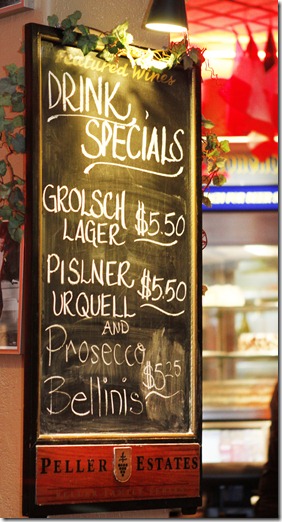 Featured Wines
DRINK
SPECIALS
GROLSCH
LAGER $5.50
PISLNER
URQUELL $5.50
AND
Prosecco
Bellinis $5.25
PELLER ESTATES